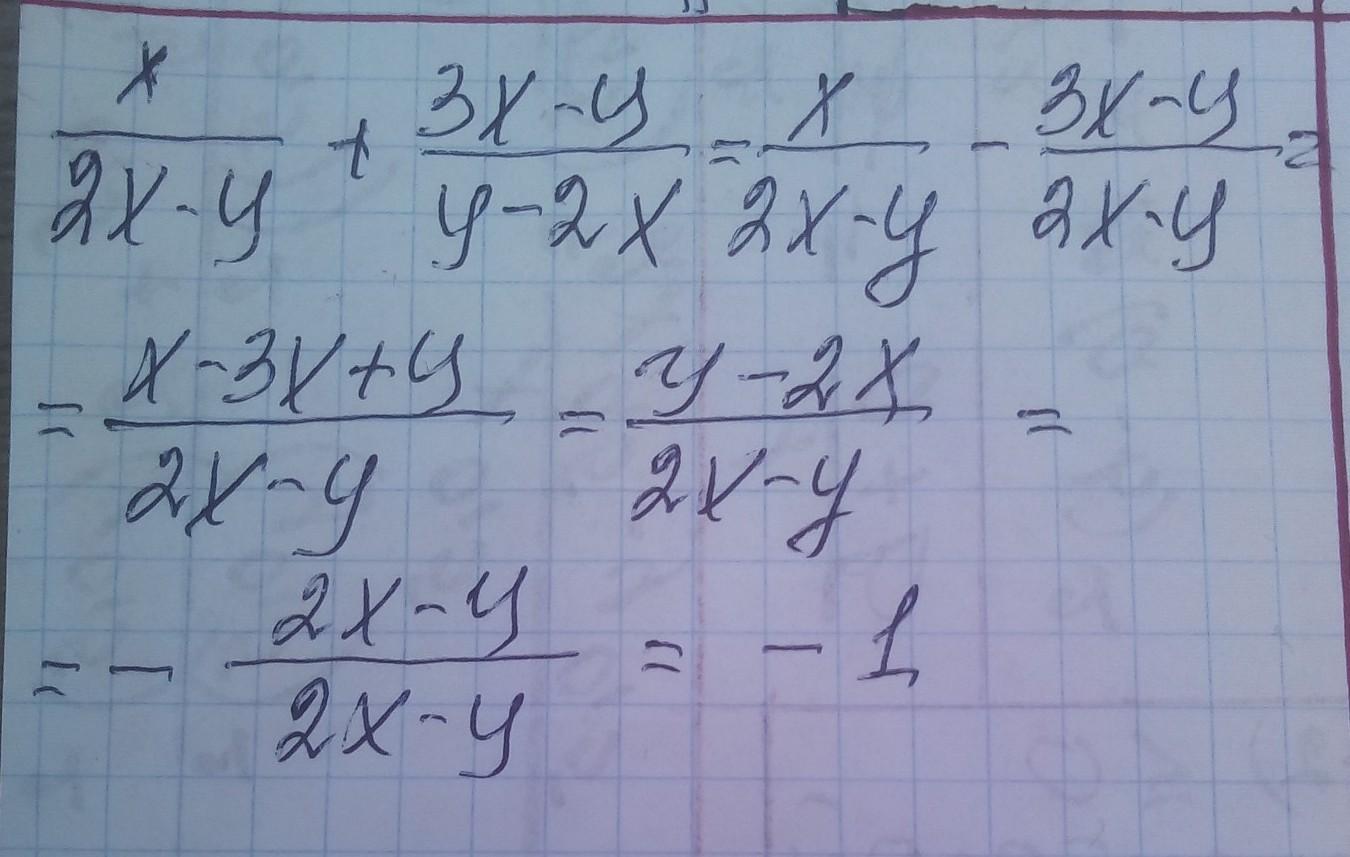 x/(2x-y) + (3x-y)/(y-2x) = x/(2x-y) - (3x-y)/(2x-y) =
= (x-3x+y)/(2x-y) = (y-2x)/(2x-y) =
= - (2x-y)/(2x-y) = - 1